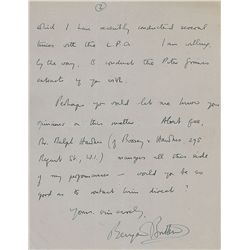 ②
which I have recently conducted several
times with the L.P.O. I am willing,
by the way, to conduct the Peter Grimes
extracts if you wish.
Perhaps you could let me know your
opinions on this matter. About fees,
Mr. Ralph Hawkes (of Boosey & Hawkes, 295
Regent St, W.1.) manages all this side
of my performances — would you be so
good as to contact him direct?
Yours sincerely,
Benjamin Britten